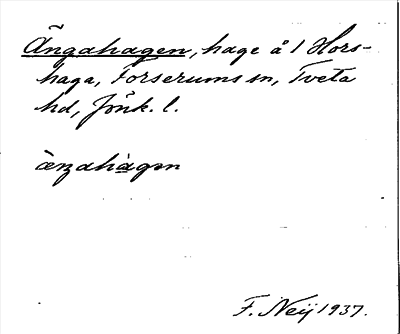 Ängahagen, hage å 1 Hors-
haga, Forserums sn, Tveta
hd, Jönk. l.
ä̀ŋahàgən
F. Neij 1937.